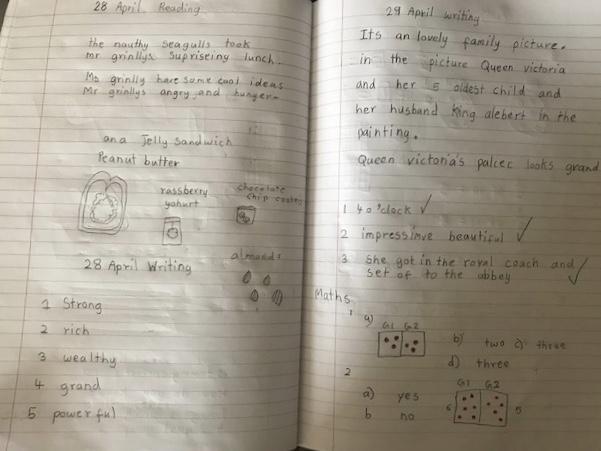 28 April Reading
the nauthy seagulls took
mr grinllys supriseiny lunch.
Ms grinlly have some cool ideas
Mr grinllys angry and hunger
ana Jelly sandwich
Peanut butter
rassberry
yohurt
chocolate
chip
almonds
28 April Writing
1 Strong
2 rich
3 wealthy
4 grand
5 powerful
29 April writing
Its an lovely family picture.
in the picture Queen victoria
and her 5 oldest child and
her husband King alebert in the
painting.
Queen victoria's palcec looks grand
1 4 o'clock
2 impressimve beautiful
3 She got in the royal coach and
set of to the abbey
Maths
1
a) G1 G2
b) two c) three
d) three
2
a) yes
b no
G1 G2
6 5